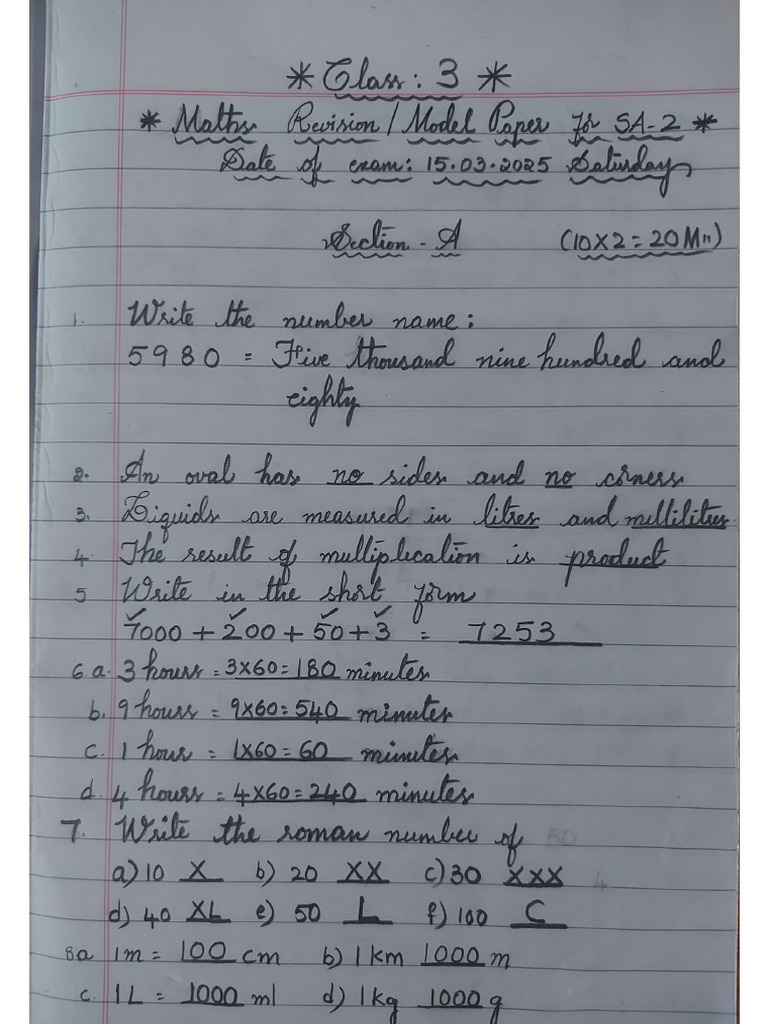 * Class : 3 *
* Maths Revision / Model Paper for SA-2 *
Date of exam: 15.03.2025 Saturday
Section - A (10X2=20M")
1. Write the number name :
5980 = Five thousand nine hundred and
eighty
2. An oval has no sides and no corners
3. Liquids are measured in litres and millilitres.
4. The result of multiplication is product
5 Write in the short form
7000 + 200 + 50 + 3 = 7253
6.a. 3 hours = 3x60=180 minutes
b. 9 hours = 9x60=540 minutes
c. 1 hour = 1x60=60 minutes
d. 4 hours = 4x60=240 minutes
7. Write the roman number of
a) 10 X b) 20 XX c) 30 XXX
d) 40 XL e) 50 L f) 100 C
8a 1m = 100 cm b) 1 km 1000 m
c. 1L = 1000 ml d) 1kg 1000 g